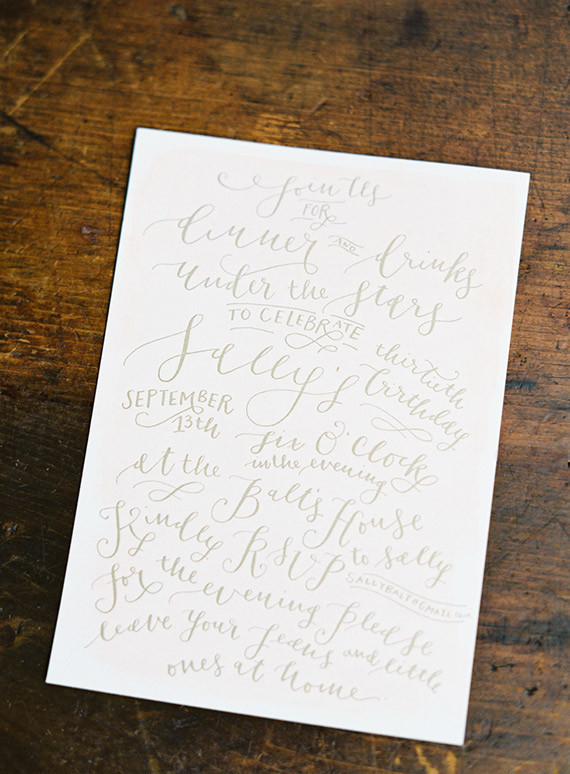 Join Us
FOR
dinner AND drinks
Under the stars
TO CELEBRATE
Sally's thirtieth birthday
SEPTEMBER 13th
six O'Clock in the evening
at the Balt's House
Kindly RSVP to Sally
SALLYBALT@GMAIL.COM
for the evening please
leave your jeans and little
ones at home